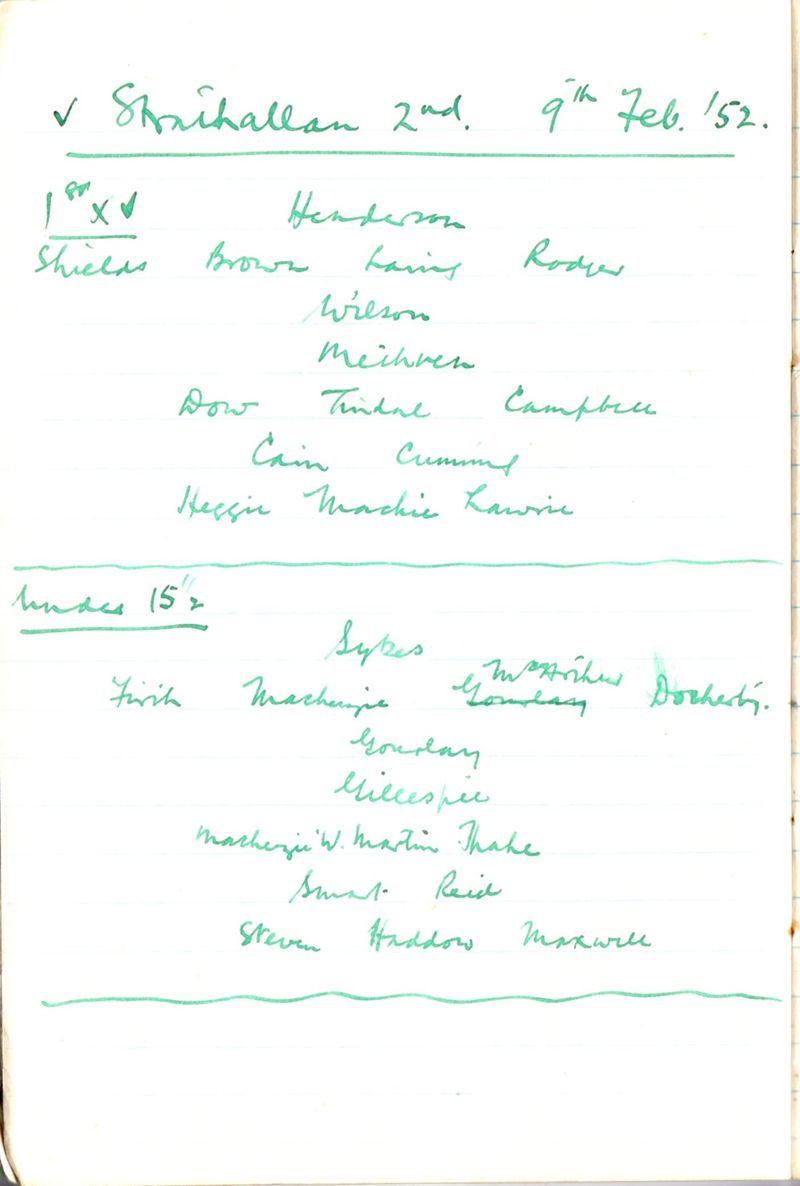 v Strathallan 2nd. 9th Feb. '52.
1st XV Henderson
Shields Brown Laing Rodger
Wilson
Methven
Dow Tindal Campbell
Cain Cumming
Heggie Mackie Lawrie
Under 15½
Sykes
McArthur
Firth Mackenzie Gourlay Docherty.
Gourlay
Gillespie
Mackenzie W. Martin Thake
Smart Reid
Steven Haddow Maxwell